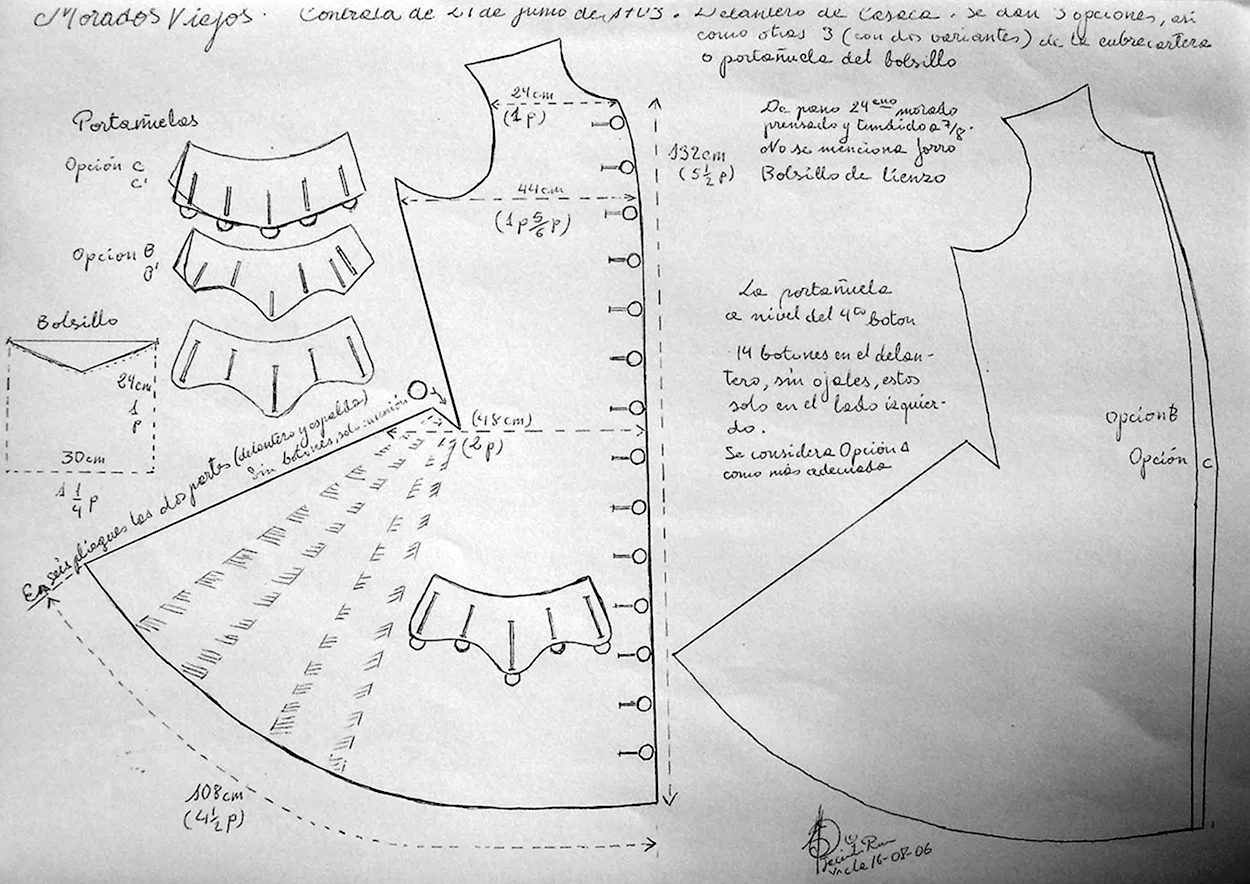 Morados Viejos. Contrata de 21 de junio de 1703. Delantero de Casaca. Se dan 3 opciones, así
como otras 3 (con dos variantes) de la cubrecartera
o portañuela del bolsillo
Portañuelas
Opción C
C'
Opción B
B'
Bolsillo
24cm
1
p
30cm
1 1/4 p
24cm
(1 p)
44cm
(1 p 5/6 p)
132cm
(5 1/2 p)
(48 cm)
(2 p)
En seis pliegues las dos partes (delantero y espalda)
Sin botones, solo
108 cm
(4 1/2 p)
De paño 24eno morado
prensado y tundido a 7/8.
No se menciona forro
Bolsillo de lienzo
La portañuela
a nivel del 4to botón
14 botones en el delan-
tero, sin ojales, estos
solo en el lado izquier-
do.
Se considera Opción A
como más adecuada
Opción B
Opción C
(c)
16-08-06